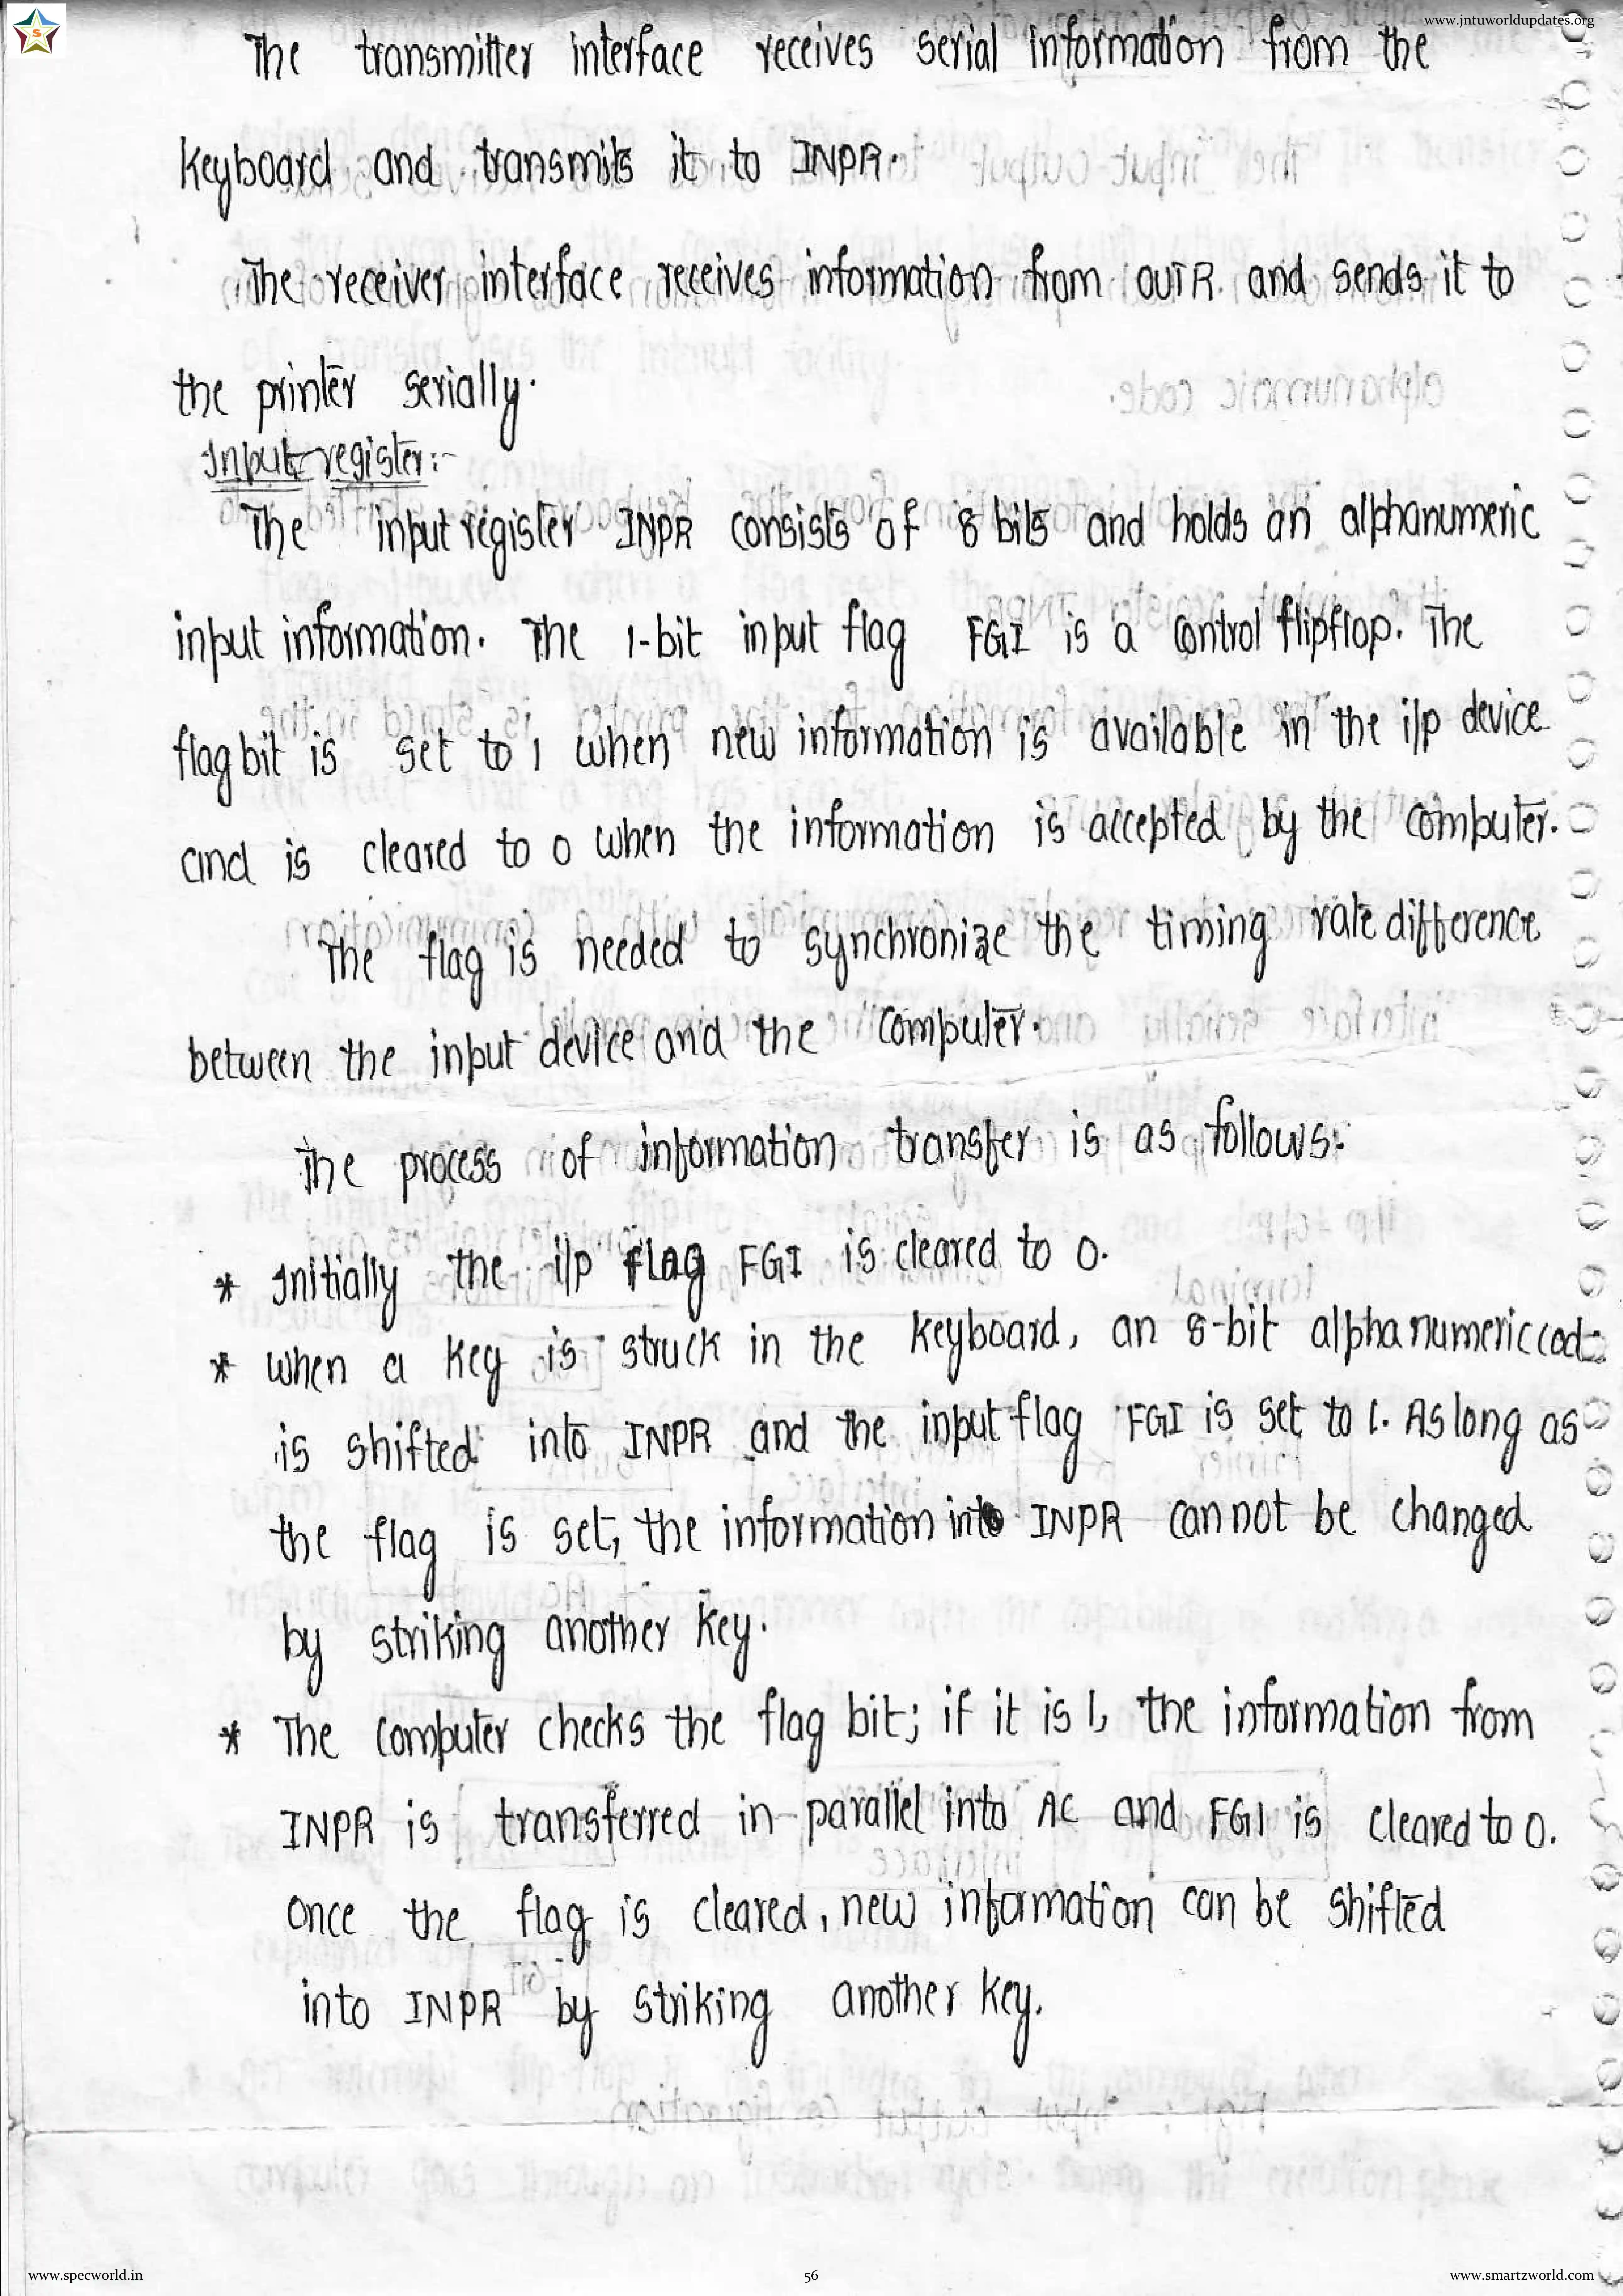 www.jntuworldupdates.org
S
The transmitter interface receives serial information from the
keyboard and transmits it to INPR.
The receiver interface receives information from OUTR and sends it to
the printer serially.
Input register:-
The input register INPR consists of 8 bits and holds an alphanumeric
input information. The 1-bit input flag FGI is a control flipflop. The
flag bit is set to 1 when new information is available in the i/p device
and is cleared to 0 when the information is accepted by the computer.
The flag is needed to synchronize the timing rate difference
between the input device and the computer.
The process of information transfer is as follows:
* Initially the i/p flag FGI is cleared to 0.
* When a key is struck in the keyboard, an 8-bit alphanumeric code
is shifted into INPR and the input flag FGI is set to 1. As long as
the flag is set, the information into INPR cannot be changed
by striking another key.
* The computer checks the flag bit; if it is 1, the information from
INPR is transferred in parallel into AC and FGI is cleared to 0.
Once the flag is cleared, new information can be shifted
into INPR by striking another key.
www.specworld.in
56
www.smartzworld.com